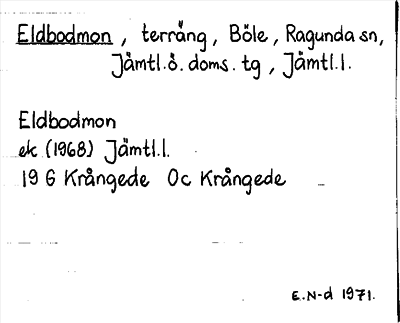 Eldbodmon, terräng, Böle, Ragunda sn,
Jämtl.ö. doms. tg, Jämtl.l.
Eldbodmon
ek (1968) Jämtl.l.
19 G Krångede Oc Krångede
E.N-d 1971.